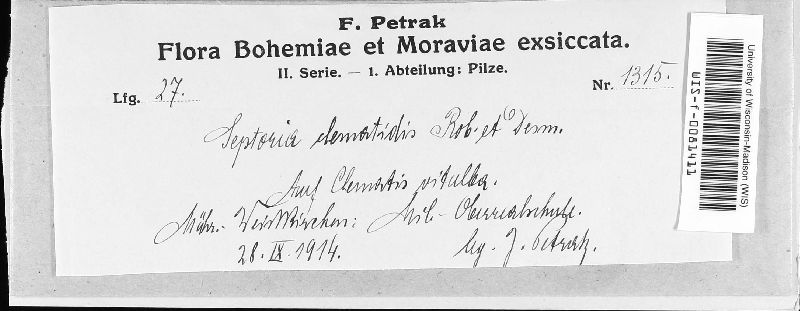 F. Petrak
Flora Bohemiae et Moraviae exsiccata.
II. Serie. — 1. Abteilung: Pilze.
Lfg. 27.
Nr. 1315.
Septoria clematidis Rob. et Desm.
Auf Clematis vitalba.
Mähr.-Weisskirchen: Mil.-Oberrealschule.
28. IX. 1914. lg. J. Petrak.
University of Wisconsin-Madison (WIS)
WIS-f-0081411